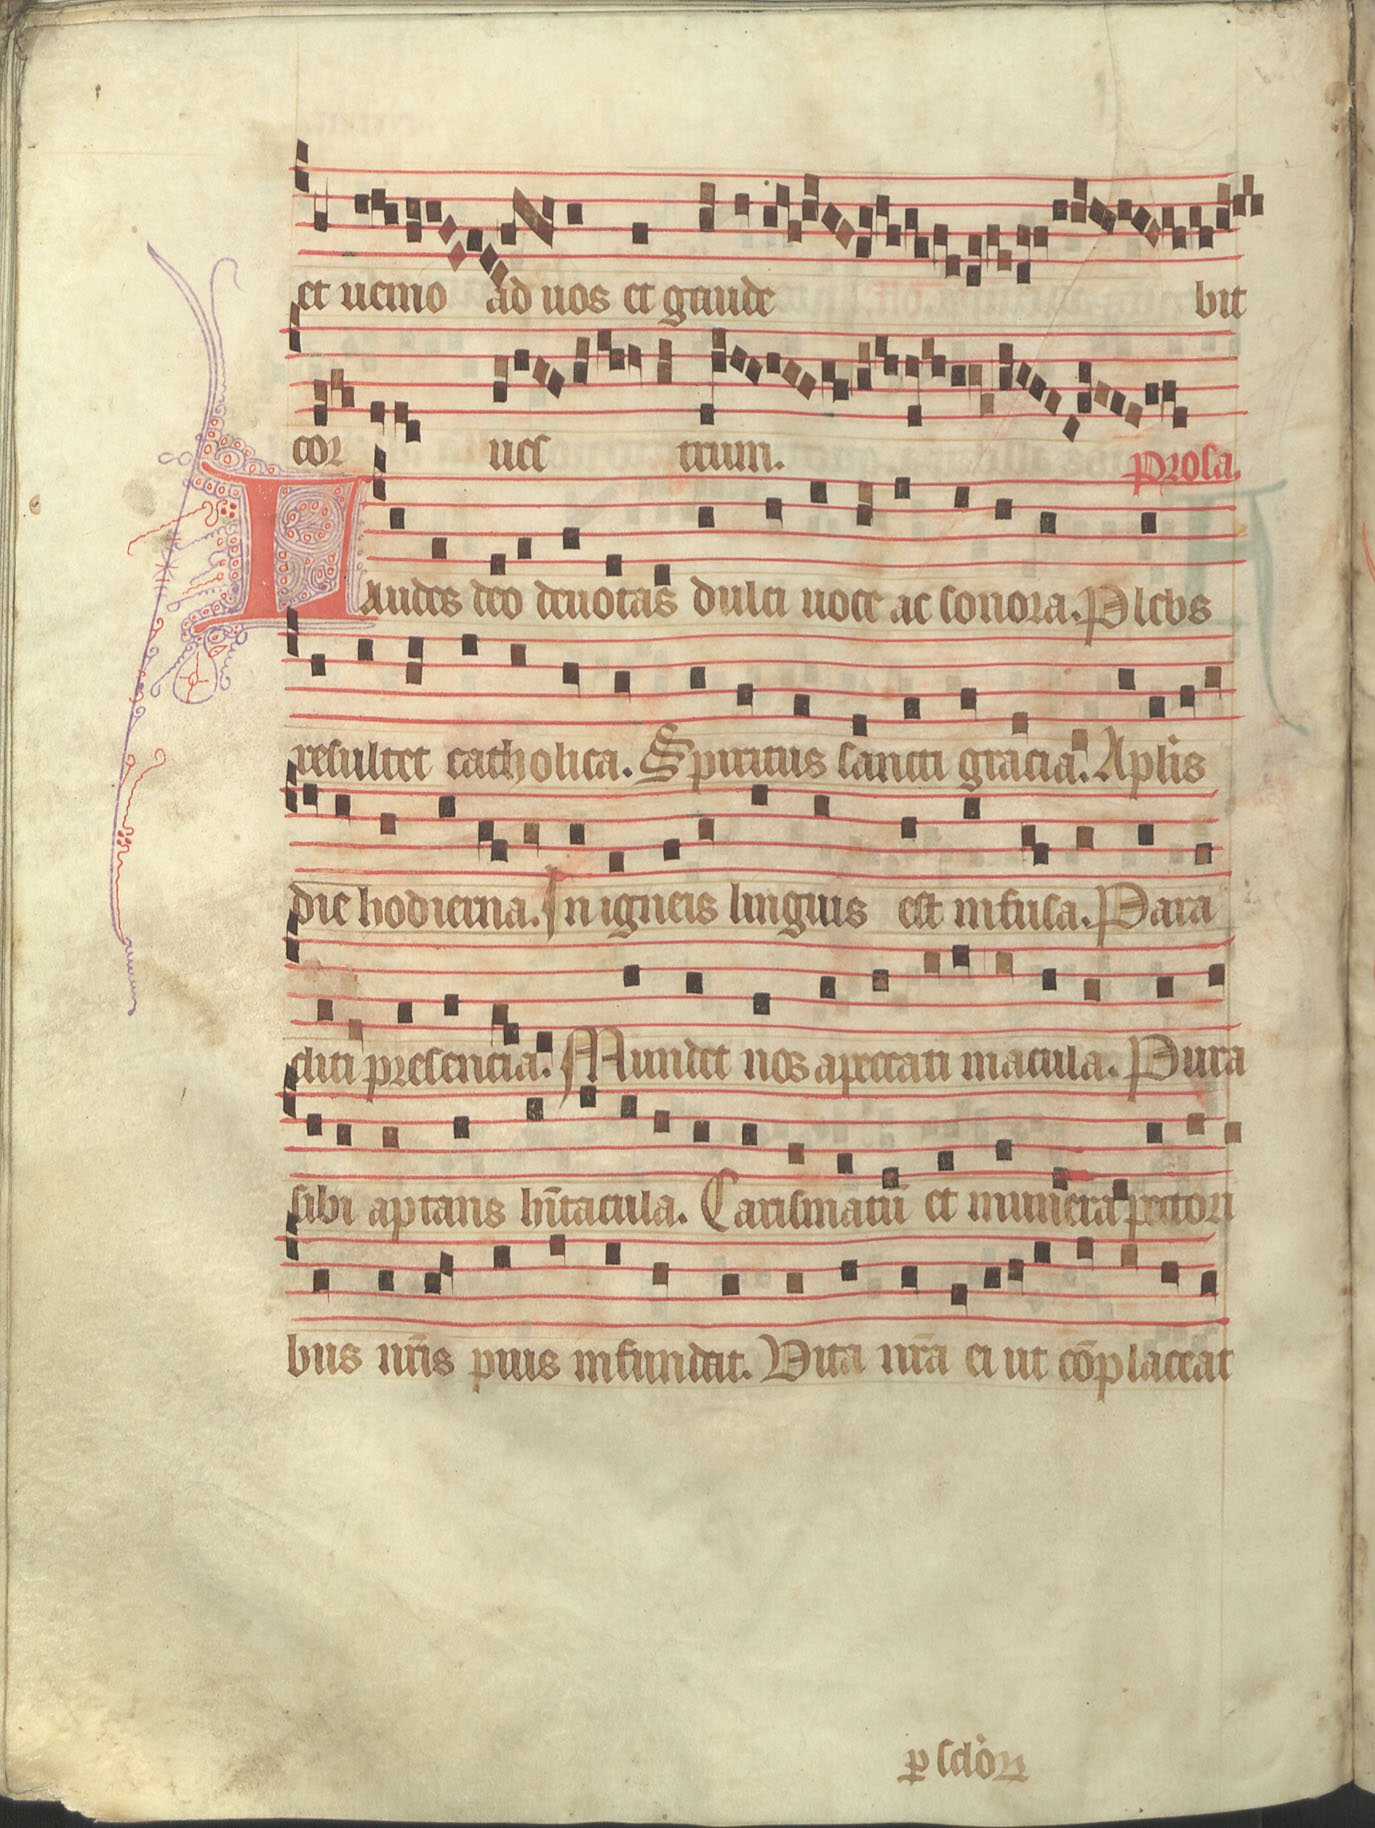 et uenio ad uos et gaude bit
cor ues trum.
Prosa.
Laudes deo deuotas dulci uoce ac sonora. Plebs
resultet catholica. Spiritus sancti gracia. Apl'is
die hodierna. In igneis linguis est infusa. Para
cliti presencia. Mundet nos a peccati macula. Pura
sibi aptans hītacula. Carismatū et munera pectori
bus nr̄is pius infundat. Vita nr̄a ei ut cōplaceat